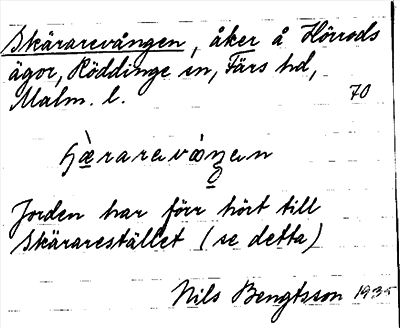 Skärarevången, åker å Hörrods
ägor, Röddinge sn, Färs hd,
Malm. l. 70
Jorden har förr hört till
Skärarestället (se detta)
Nils Bengtsson 1935